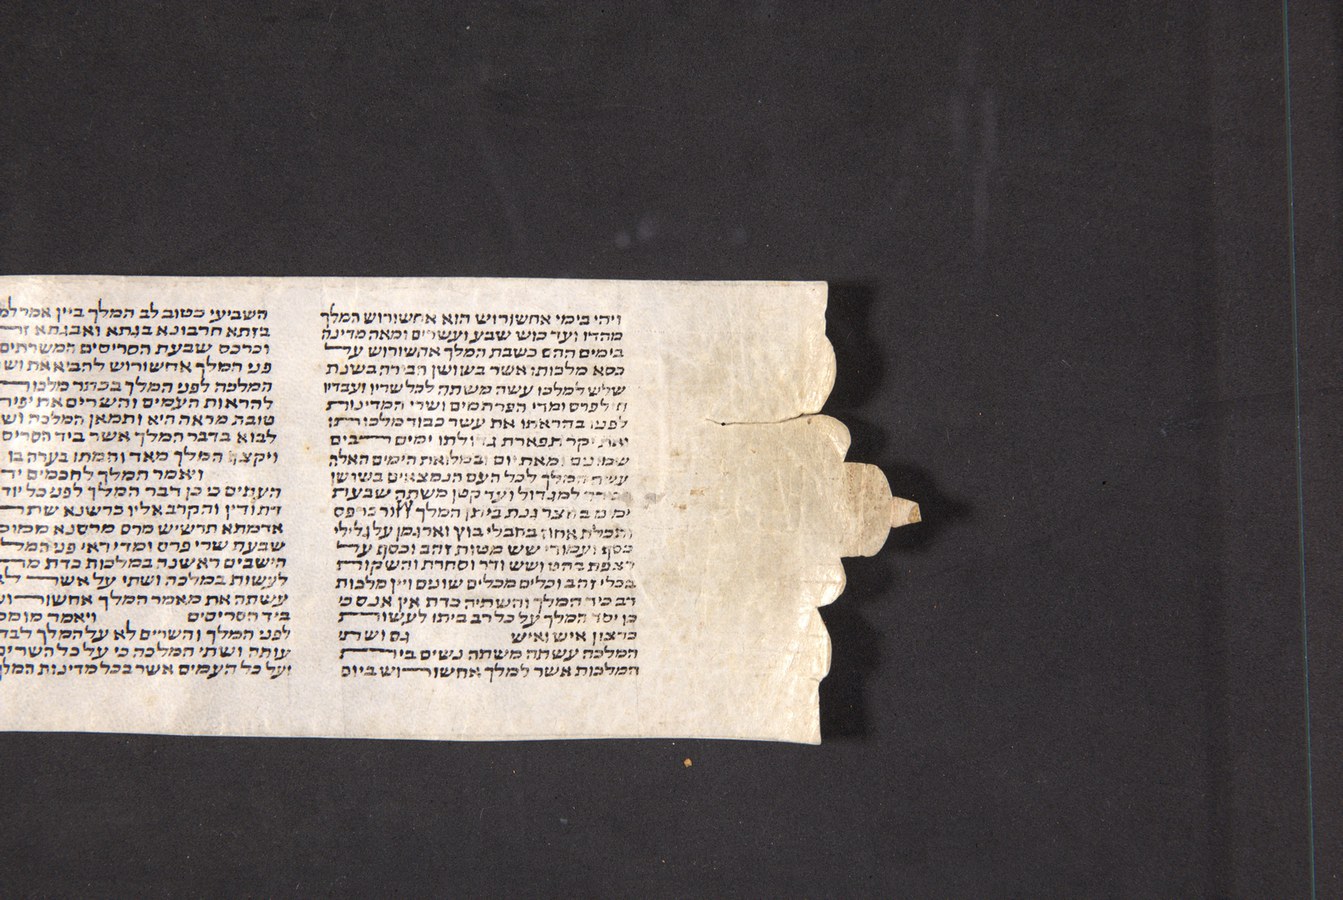 ויהי בימי אחשורוש הוא אחשורוש המלך
מהדו ועד כוש שבע ועשרים ומאה מדינה
בימים ההם כשבת המלך אחשורוש על
כסא מלכותו אשר בשושן הבירה בשנת
שלש למלכו עשה משתה לכל שריו ועבדיו
חיל פרס ומדי הפרתמים ושרי המדינות
לפניו בהראתו את עשר כבוד מלכותו
ואת יקר תפארת גדולתו ימים רבים
שמונים ומאת יום ובמלואת הימים האלה
עשה המלך לכל העם הנמצאים בשושן
הבירה למגדול ועד קטן משתה שבעת
ימים בחצר גנת ביתן המלך חור כרפס
ותכלת אחוז בחבלי בוץ וארגמן על גלילי
כסף ועמודי שש מטות זהב וכסף על
רצפת בהט ושש ודר וסחרת והשקות
בכלי זהב וכלים מכלים שונים ויין מלכות
רב כיד המלך והשתיה כדת אין אנס כי
כן יסד המלך על כל רב ביתו לעשות
כרצון איש ואיש גם ושתי
המלכה עשתה משתה נשים בית
המלכות אשר למלך אחשורוש ביום
השביעי כטוב לב המלך ביין אמר
בזתא חרבונא בגתא ואבגתא
וכרכס שבעת הסריסים המשרתים
פני המלך אחשורוש להביא את
המלכה לפני המלך בכתר מלכות
להראות העמים והשרים את יפיה
טובת מראה היא ותמאן המלכה
לבוא בדבר המלך אשר ביד הסריסים
ויקצף המלך מאד וחמתו בערה בו
ויאמר המלך לחכמים
העתים כי כן דבר המלך לפני כל
דת ודין והקרב אליו כרשנא שתר
אדמתא תרשיש מרס מרסנא ממוכן
שבעת שרי פרס ומדי ראי פני
הישבים ראשנה במלכות כדת מה
לעשות במלכה ושתי על אשר לא
עשתה את מאמר המלך אחשורוש
ביד הסריסים ויאמר מומכן
לפני המלך והשרים לא על המלך לבדו
עותה ושתי המלכה כי על כל השרים
ועל כל העמים אשר בכל מדינות המלך